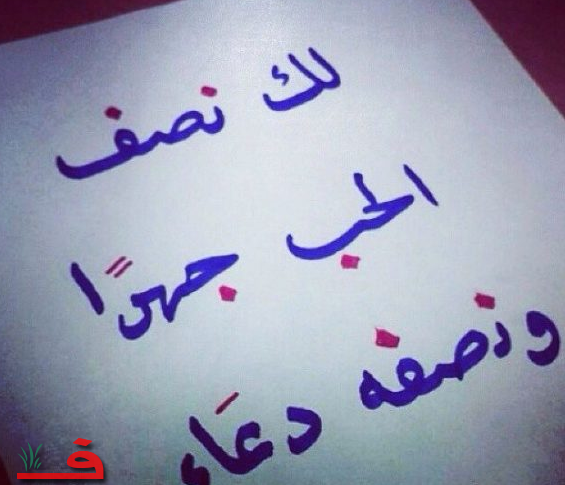 لك نصف
الحب جهرًا
ونصفه دعَاء
فـ